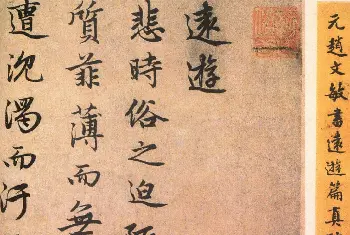 元趙文敏書遠遊篇真
遠遊
悲時俗之迫
質菲薄而無
遭沈濁而汙